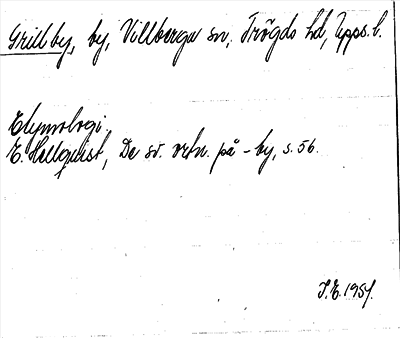 Grillby, by, Villberga sn, Trögds hd, Upps. l.
Etymologi.
E. Hellquist, De sv. ortn. på -by, s. 56.
S.E. 1957.